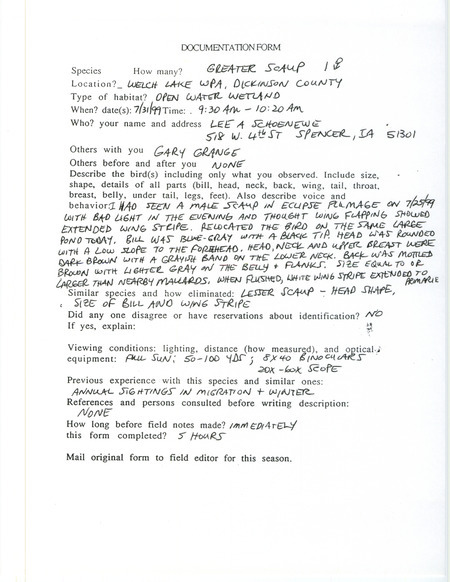 DOCUMENTATION FORM
Species How many? GREATER SCAUP 1♂
Location? WELCH LAKE WPA, DICKINSON COUNTY
Type of habitat? OPEN WATER WETLAND
When? date(s): 7/31/99 Time: . 9:30 AM - 10:20 AM
Who? your name and address LEE A SCHOENEWE
518 W. 4th ST SPENCER, IA 51301
Others with you GARY GRANGE
Others before and after you NONE
Describe the bird(s) including only what you observed. Include size,
shape, details of all parts (bill, head, neck, back, wing, tail, throat,
breast, belly, under tail, legs, feet). Also describe voice and
behavior: I HAD SEEN A MALE SCAUP IN ECLIPSE PLUMAGE ON 7/25/99
WITH BAD LIGHT IN THE EVENING AND THOUGHT WING FLAPPING SHOWED
EXTENDED WING STRIPE. RELOCATED THE BIRD ON THE SAME LARGE
POND TODAY. BILL WAS BLUE-GRAY WITH A BLACK TIP. HEAD WAS ROUNDED
WITH A LOW SLOPE TO THE FOREHEAD. HEAD, NECK AND UPPER BREAST WERE
DARK BROWN WITH A GRAYISH BAND ON THE LOWER NECK. BACK WAS MOTTLED
BROWN WITH LIGHTER GRAY ON THE BELLY + FLANKS. SIZE EQUAL TO OR
LARGER THAN NEARBY MALLARDS. WHEN FLUSHED, WHITE WING STRIPE EXTENDED TO
PRIMARIE
Similar species and how eliminated: LESSER SCAUP - HEAD SHAPE,
SIZE OF BILL AND WING STRIPE
Did any one disagree or have reservations about identification? NO
If yes, explain:
Viewing conditions: lighting, distance (how measured), and optical
equipment: FULL SUN; 50-100 YDS; 8X40 BINOCULARS
20X-60X SCOPE
Previous experience with this species and similar ones:
ANNUAL SIGHTINGS IN MIGRATION + WINTER
References and persons consulted before writing description:
NONE
How long before field notes made? IMMEDIATELY
this form completed? 5 HOURS
Mail original form to field editor for this season.